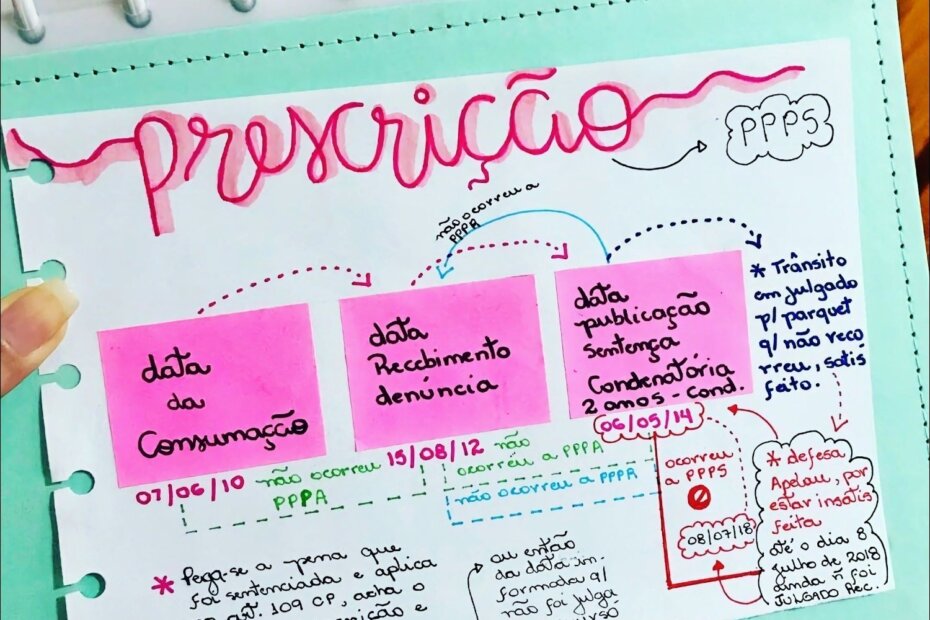 prescrição
PPPS
não ocorreu a
PPPR
data
da
Consumação
07/06/10
não ocorreu
PPPA
data
Recebimento
denúncia
15/08/12
não
ocorreu a PPPA
não ocorreu a PPPR
data
publicação
sentença
Condenatória
2 anos - Cond.
06/05/14
ocorreu
a PPPS
08/07/18
* Trânsito
em julgado
p/ parquet
q/ não reco
rreu, satis
feito.
* defesa
Apelou, por
estar insatis
feita
até o dia 8
julho de 2018
ainda ñ foi
JULGADO REC.
* Pega-se a pena que
foi sentenciada e aplica
art. 109 CP, acha o
e
ou então
da data in
formada q/
não foi julga